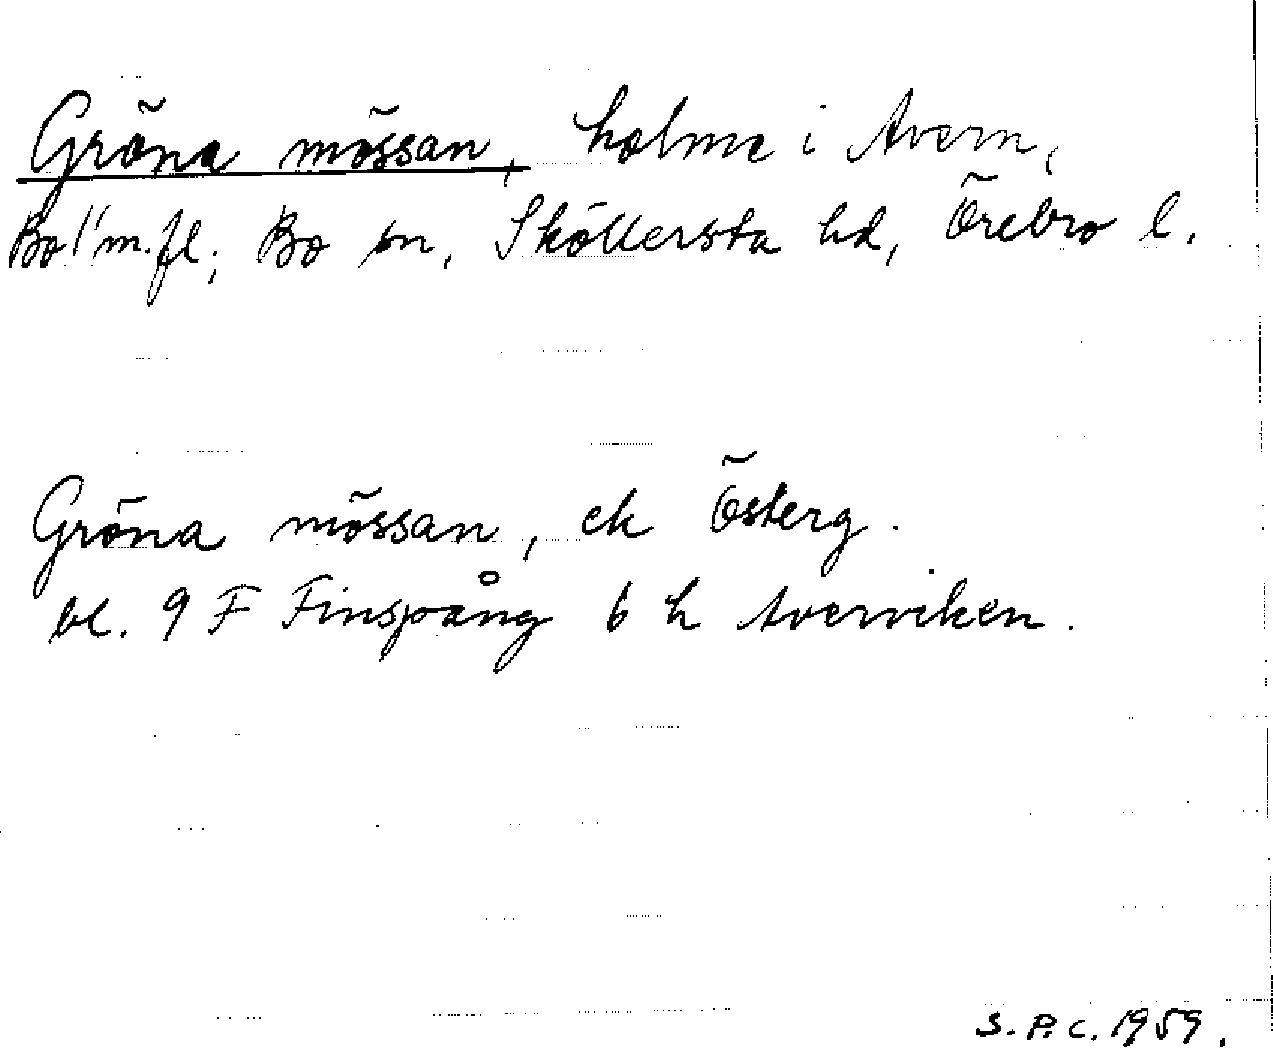 Gröna mössan, holme i Avern,
Bo 1/1 m.fl., Bo sn, Sköllersta hd, Örebro l.
Gröna mössan, ek Österg.
bl. 9 F Finspång 6 h Averviken.
S.P.C. 1959.